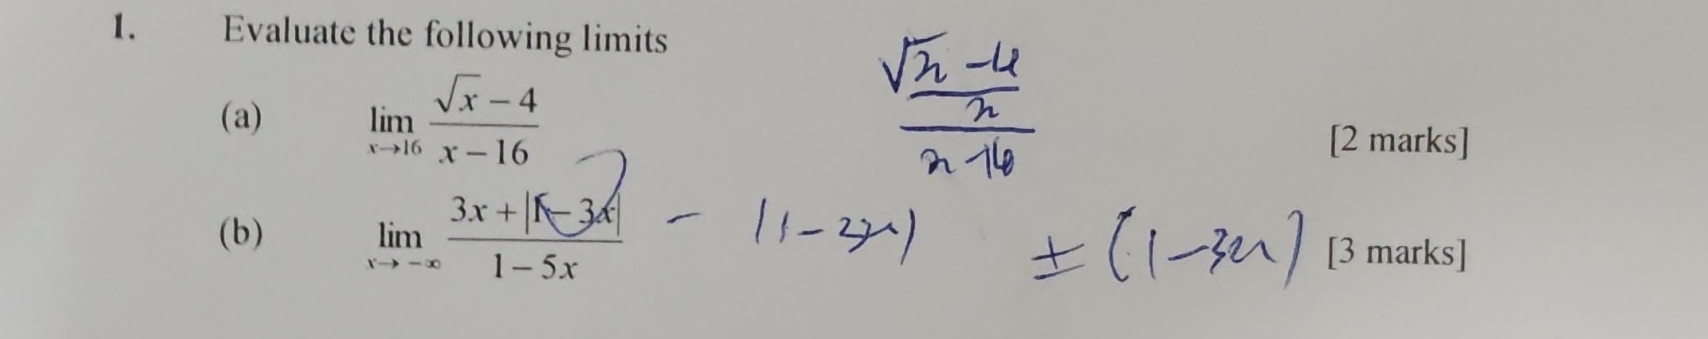 1. Evaluate the following limits
(a) lim x→16 (√x − 4)/(x − 16) [2 marks]
(b) lim x→−∞ (3x + |1 − 3x|)/(1 − 5x) [3 marks]
− (1−3x) ± (1−3x)